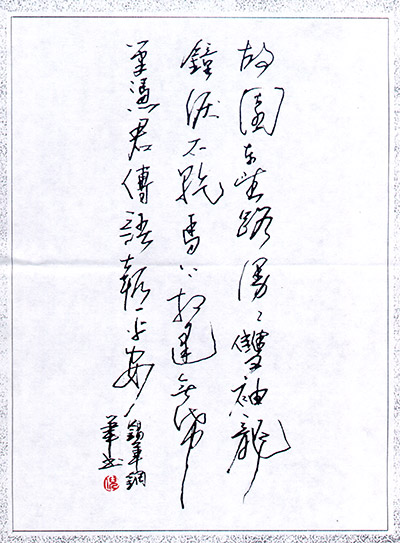 故園東望路漫〻雙袖龍
鐘淚不乾馬上相逢無帋
筆憑君傳語報平安
鋼
筆書